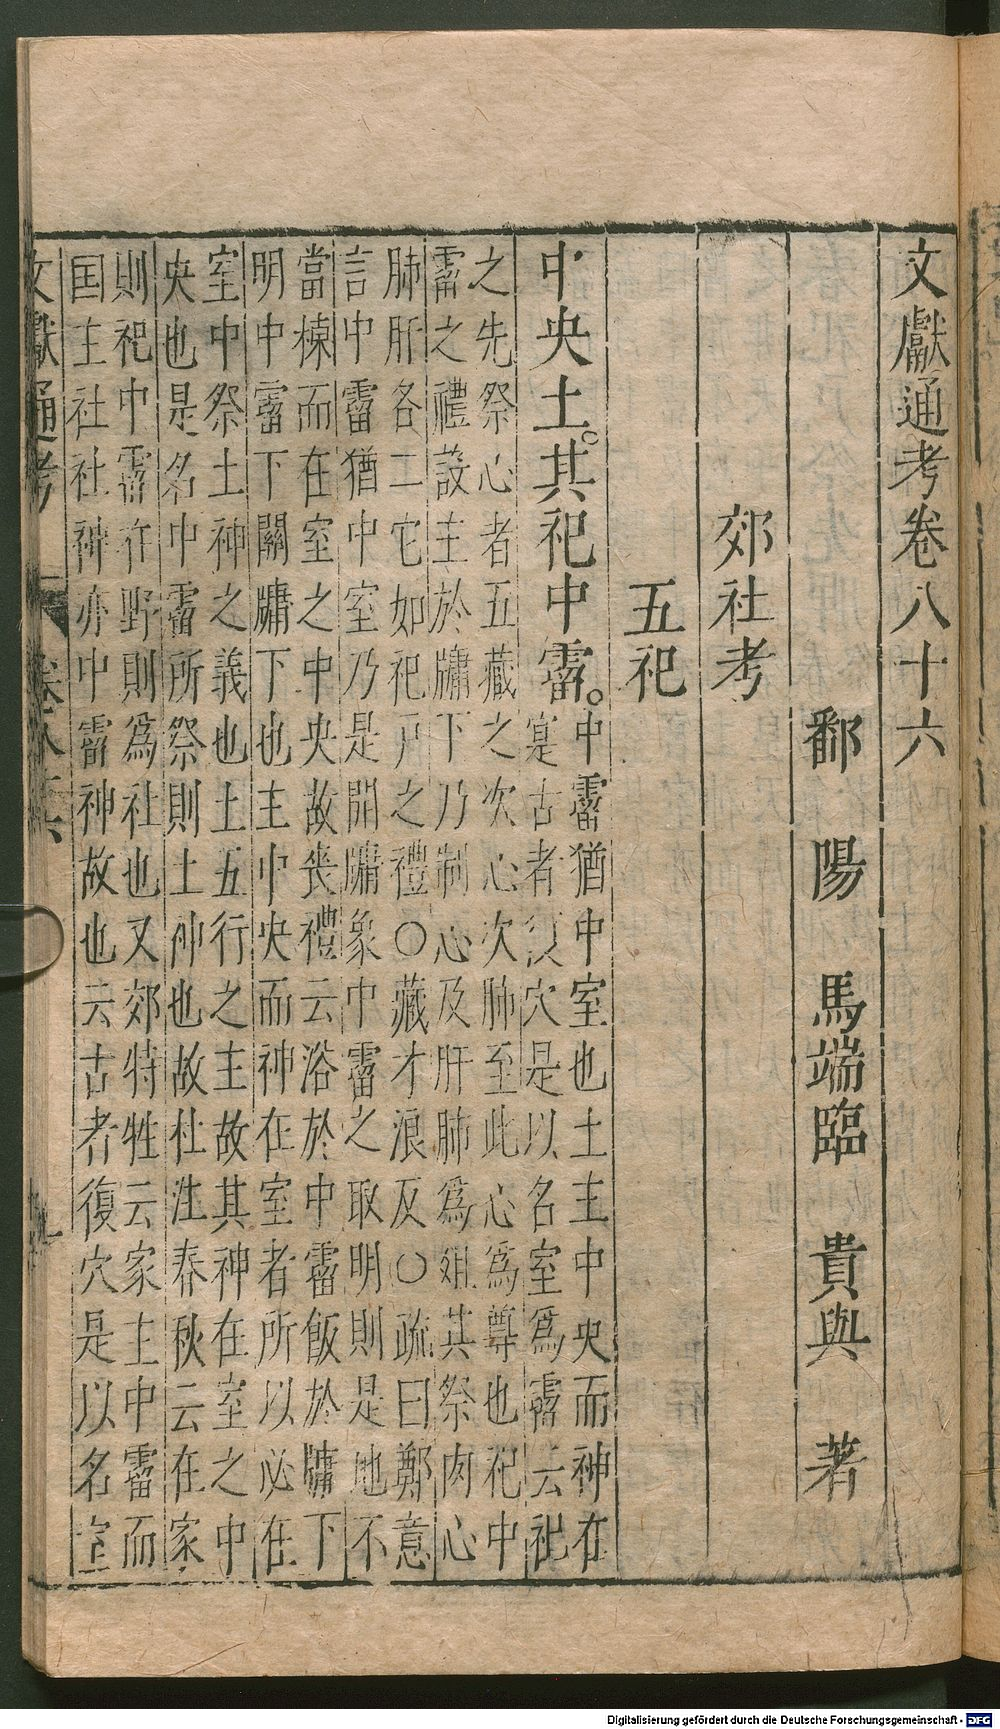 文獻通考卷八十六
鄱陽 馬端臨 貴與 著
郊社考
五祀
中央土。其祀中霤。
中霤猶中室也土主中央而神在
室古者複穴是以名室爲霤云祀
之先祭心者五藏之次心次肺至此心爲尊也祀中
霤之禮設主於牖下乃制心及肝肺爲俎其祭肉心
肺肝各二它如祀戸之禮○藏才浪反○疏曰鄭意
言中霤猶中室乃是開牖象中霤之取明則是地不
當棟而在室之中央故喪禮云浴於中霤飯於牖下
明中霤下關牖下也主中央而神在室者所以必在
室中祭土神之義也土五行之主故其神在室之中
央也是名中霤所祭則土神也故杜注春秋云在家
則祀中霤在野則爲社也又郊特牲云家主中霤而
国主社社神亦中霤神故也云古者復穴是以名室
文獻通考 卷八十六
Digitalisierung gefördert durch die Deutsche Forschungsgemeinschaft - DFG